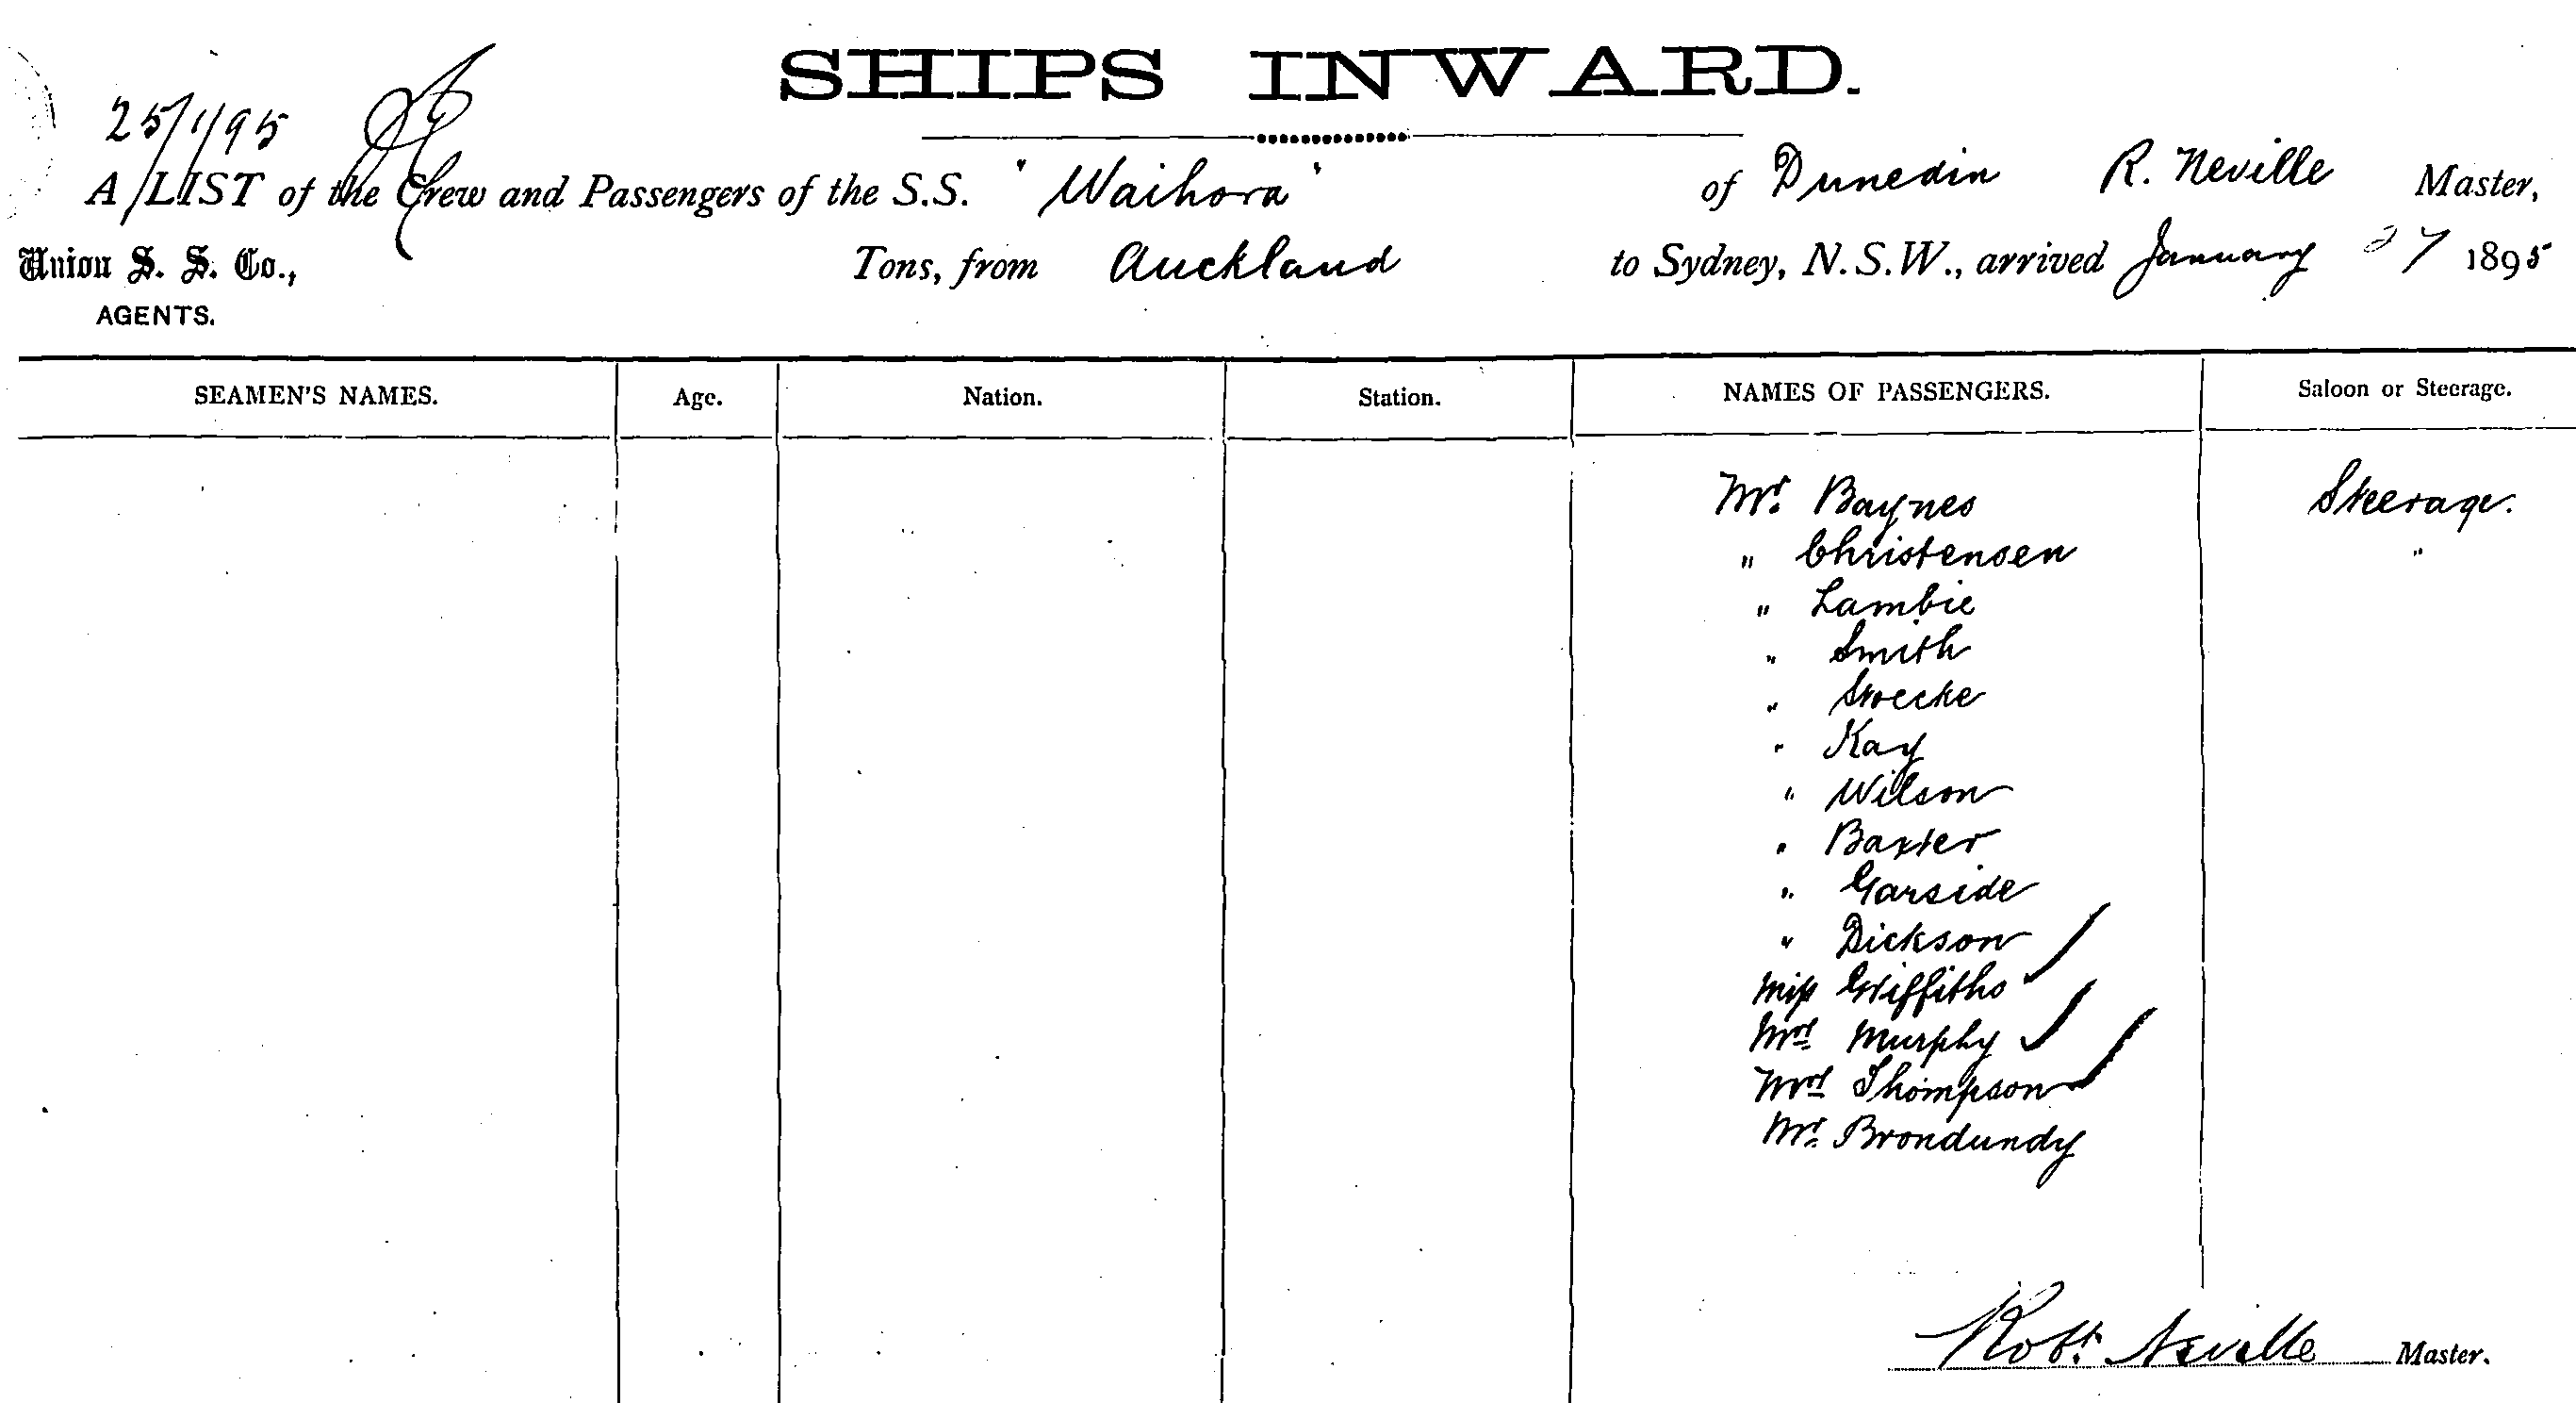 SHIPS INWARD.
25/1/95
A LIST of the Crew and Passengers of the S.S. "Waihora" of Dunedin R. Neville Master,
Union S. S. Co., Tons, from Auckland to Sydney, N.S.W., arrived January 27 1895
AGENTS.
SEAMEN'S NAMES. Age. Nation. Station. NAMES OF PASSENGERS. Saloon or Steerage.
Mr. Baynes Steerage.
" Christensen "
" Lambie
" Smith
" Stoecke
" Kay
" Wilson
" Baxter
" Garside
" Dickson
Miss Griffiths
Mrs Murphy
Mrs Thompson
Mr. Brondundy
Robt. Neville Master.